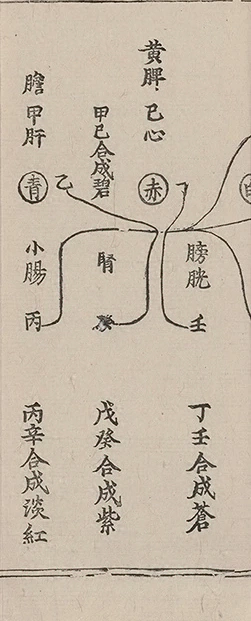 黄脾己心
赤
丁
膀胱
壬
丁壬合成蒼
甲己合成碧
腎
癸
戊癸合成紫
膽甲肝
青
乙
小腸
丙
丙辛合成淡紅